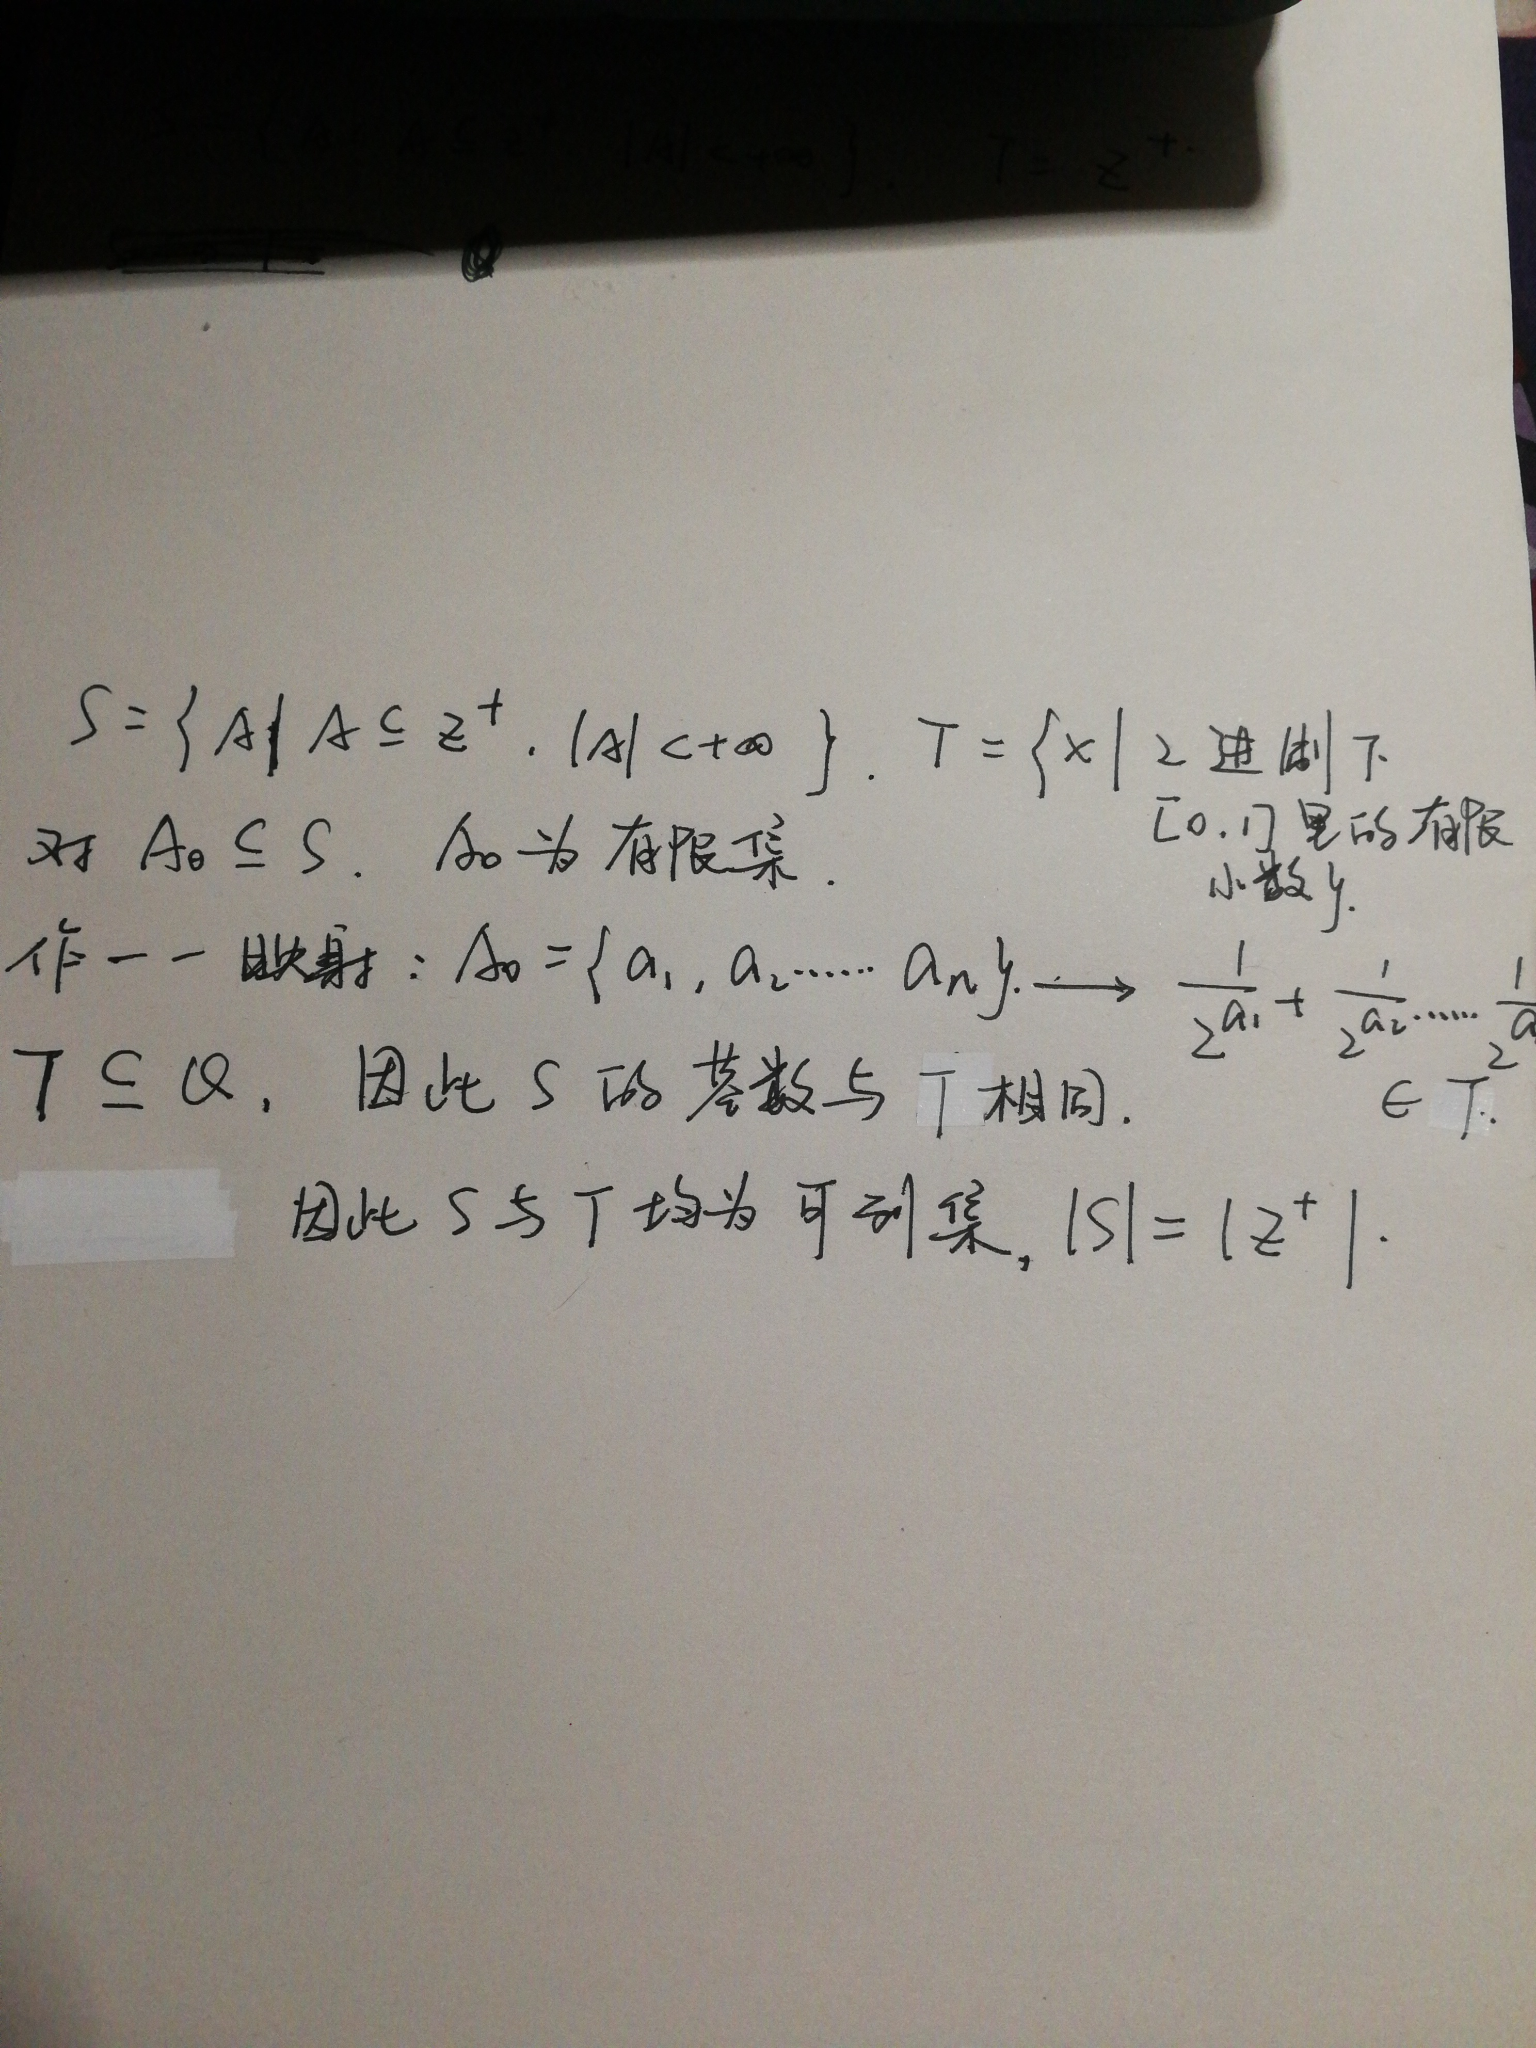 {A| A⊆Z⁺ |A|<+∞}. T = Z⁺.
S={A| A⊆Z⁺. |A|<+∞}. T={x| 2进制下
[0.1]里的有限
小数}.
对 A₀⊆S. A₀为有限集.
作一一映射: A₀={a₁, a₂…… aₙ}. ⟶ 1/2^a₁ + 1/2^a₂ …… 1/2^a
∈ T.
T⊆Q, 因此S的基数与T相同.
因此S与T均为可列集, |S|=|Z⁺|.